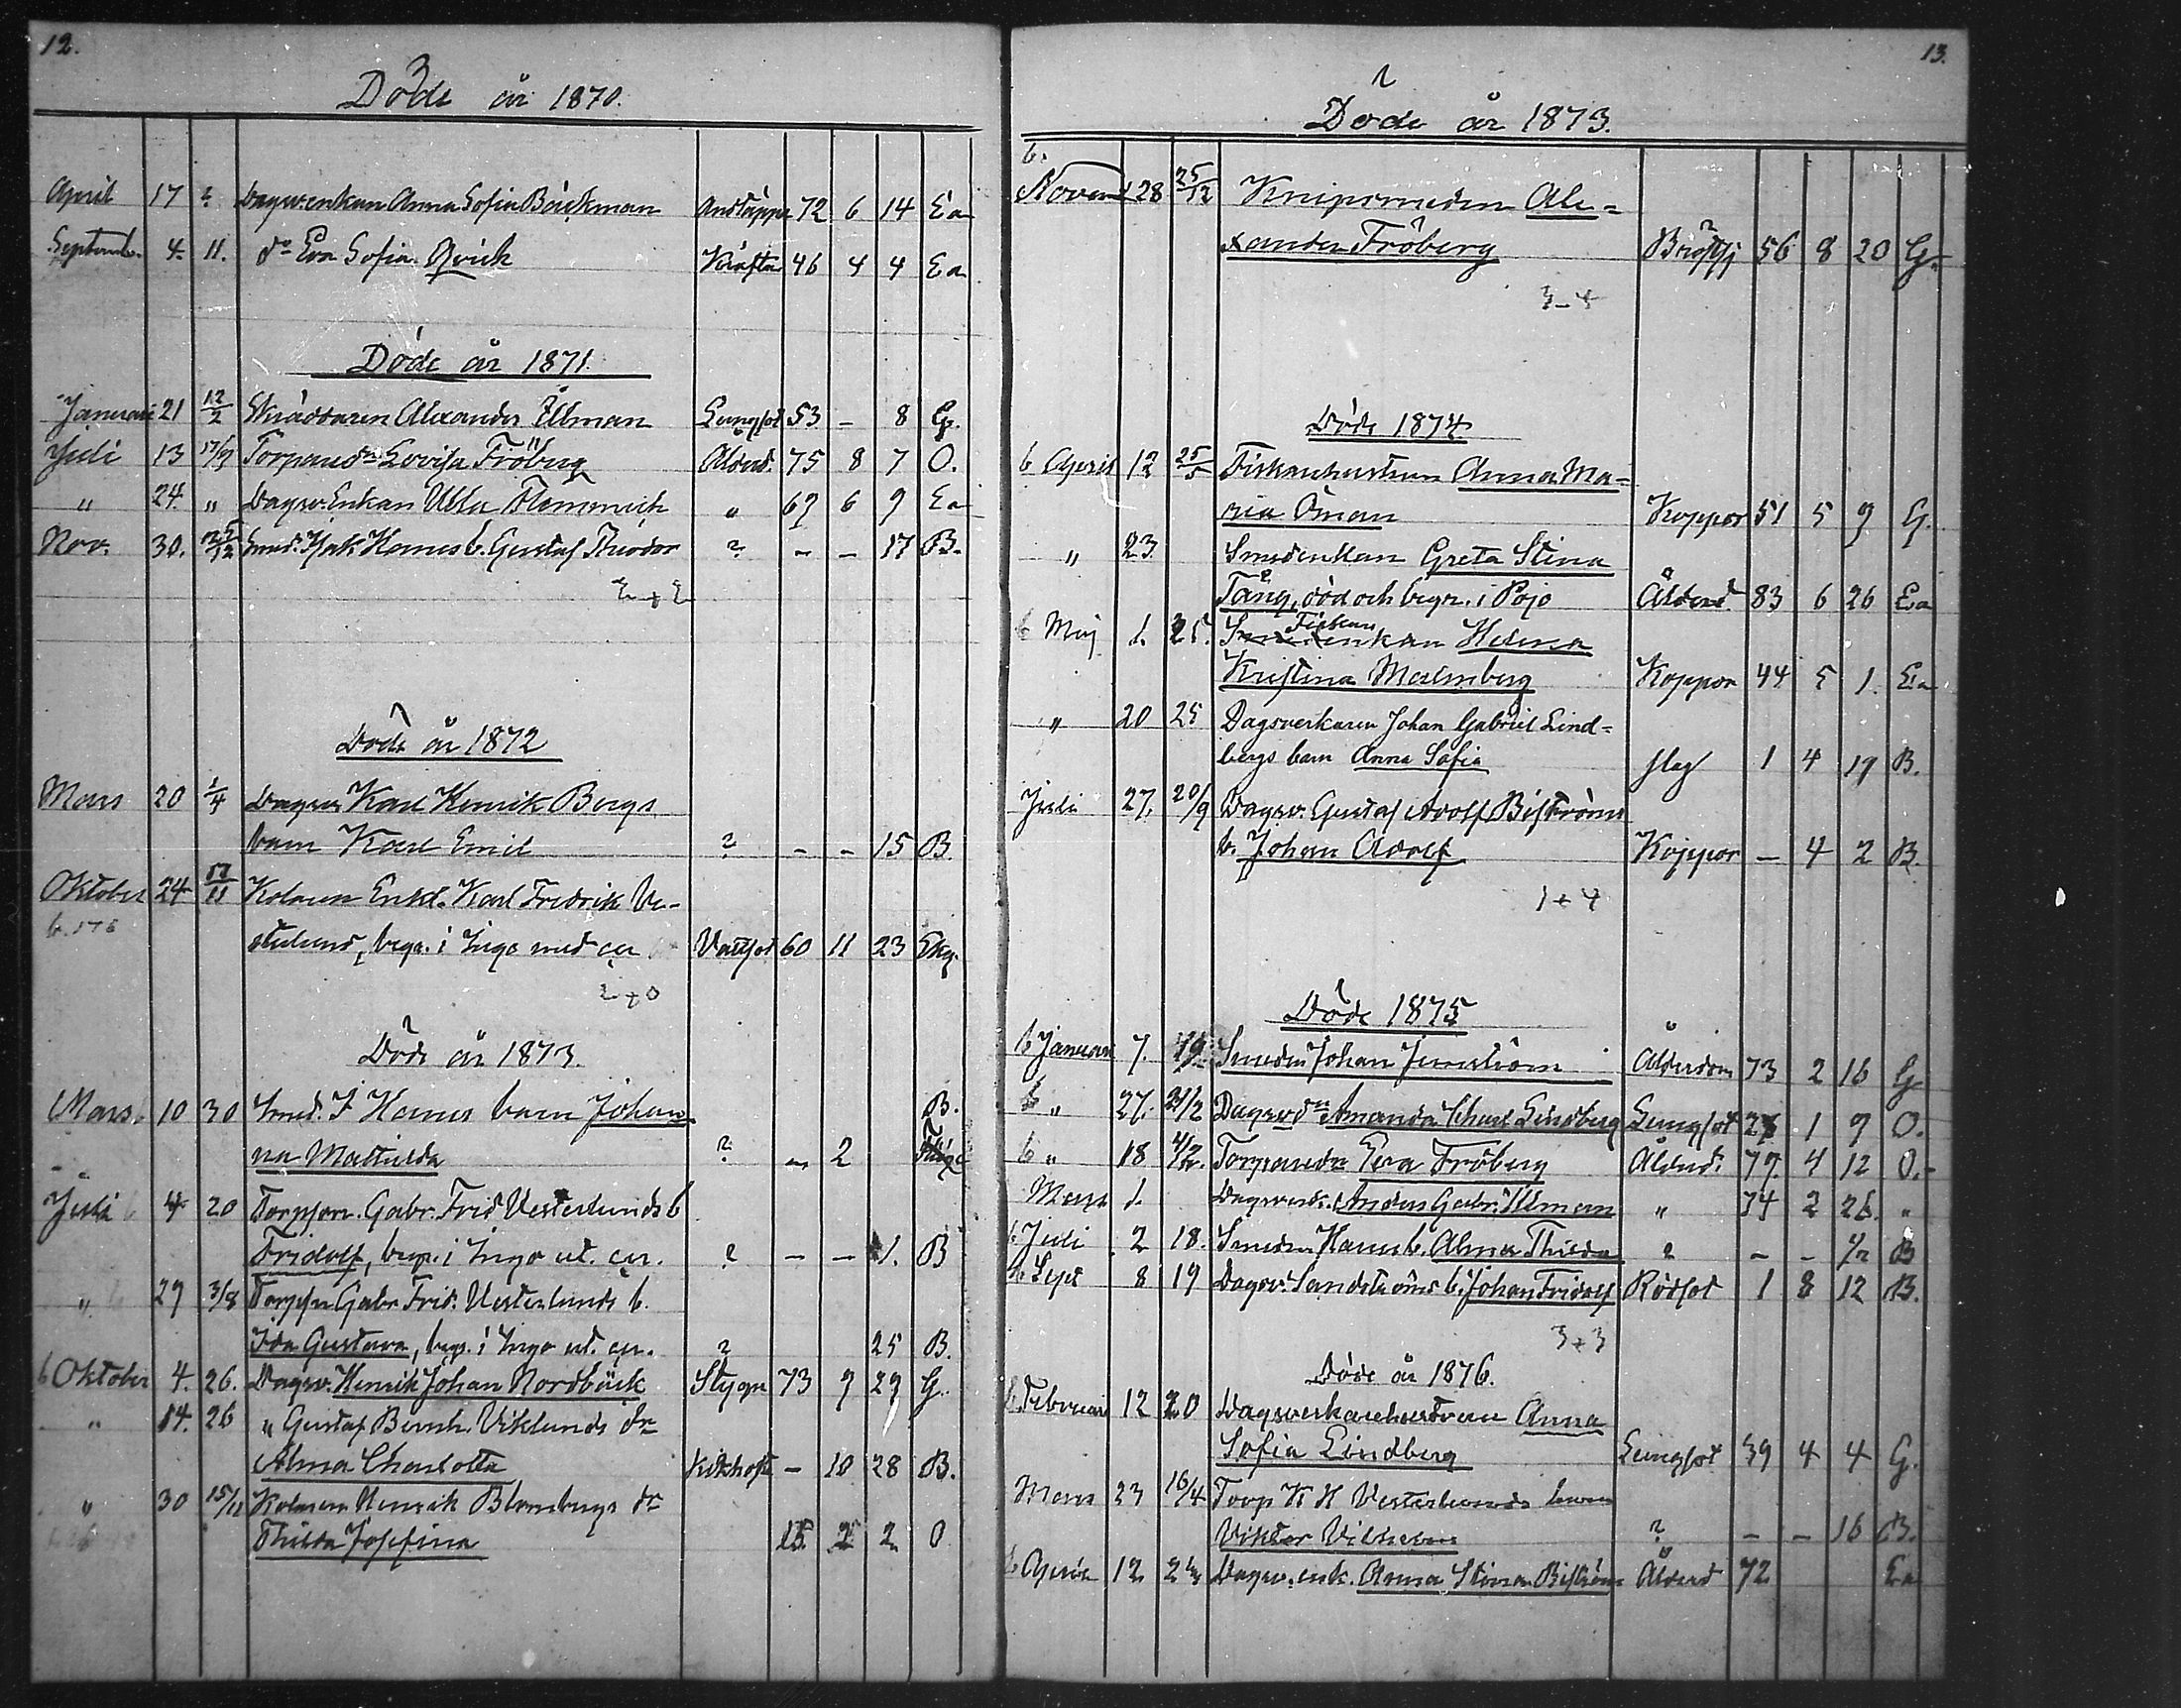 12.
Döde år 1870.
April 17 ? Dagsv.enkan Anna Sofia Bäckman Andtäppa 72 6 14 Ea
September 4 11. do Eva Sofia Qvick Kräfta 46 4 4 Ea
Döde år 1871.
Januari 21 12/2 Skräddaren Alexander Ellman Lungsot 53 - 8 G.
Juli 13 17/9 Torpared:n Lovisa Fröberg Ålderd. 75 8 7 O.
" 24. " Dagsv. Enkan Ulla Flemmich " 69 6 9 Ea
Nov. 30. 25/12 Smed. Isak Hanus b. Gustaf Theodor ? - - 17 B.
Döde år 1872
Mars 20 1/4 Dagsv. Karl Henrik Bergs
barn Karl Emil ? - - 15 B.
Oktober 24 /11 Kolaren Enkl. Karl Fredrik Ve-
sterlund, begr. i Ingo med cer Vattsot 60 11 23 Ekg.
2+0
Döde år 1873.
Mars 10 30 Smed. I Hanus barn Johan- B.
na Mathilda ? - 2
Juli b 4 20 Torpson. Gabr. Frid Vesterlunds b
Fridolf, begr. i Ingo ut. cer. ? - - 1. B
" 29 3/8 Torpsn Gabr. Frid. Vesterlunds b.
Ida Gustava, begr. i Ingo ut. cer. ? 25 B.
b Oktober 4. 26. Dagsv. Henrik Johan Nordbäck Slygn 73 9 29 G.
" 14. 26 " Gustaf Bernh. Viklunds dr
Alma Charlotta Kikhosta - 10 28 B.
" 30 15/11 Kolaren Henrik Blombergs dr
Thilda Josefina 15 2 2 O
13.
Döde år 1873.
b.
Novem 28 25/12 Knipsmeden Ale-
xander Fröberg 56 8 20 G.
3-4
Döde 1874.
b April 12 25/5 Fiskarhustrun Anna Ma-
ria Öman Koppor 51 5 9 G.
" 23. Smedenkan Greta Stina
Tång, död och begr. i Pojo Ålderd. 83 6 26 Ea
b Maj 1. 25. Smedenkan Fiskare Helena
Kristina Malmberg Koppor 44 5 1. Ea
" 20 25 Dagsverkaren Johan Gabriel Lind-
bergs barn Anna Sofia slag 1 4 19 B.
Juli 27. 20/9 Dagsv. Gustaf Adolf Biströms
b. Johan Adolf Koppor - 4 2 B.
1+4
Döde 1875
b Januari 7. 19. Smeden Johan Jernström Ålderdom 73 2 16 G
b " 27. 21/2 Dagsvdn Amanda Charl Lindberg Lungsot 27 1 9 O.
b " 18 4/2. Torparedr Eva Fröberg Ålderd. 77. 4 12 O.
Mars 1. Dagsverk. Anders Gabr. Ulman " 74 2 26. "
b Juli 2 18. Smeden Hanus b. Alma Thilda ? - - 1/2 B
b Sept 8 19 Dagsv. Sandströms b. Johan Fridolf Rödsot 1 8 12 B.
3+3
Döde år 1876.
b Februari 12 20 Dagsverkarehustrun Anna
Sofia Lindberg Lungsot 39 4 4 G.
Mars 23 16/4 Torp K H Vesterlunds barn
Viktor Vilhelm ? - - 16 B.
b April 12 Dagsv. enk. Anna Stina Biström Ålderd 72 Ea